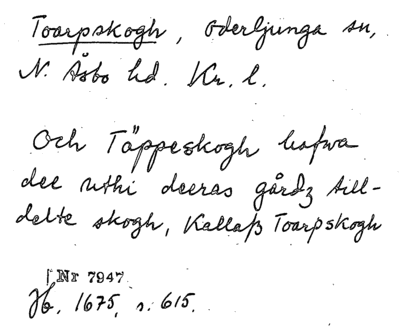 Toarpskogh, Oderljunga sn,
N. Åsbo hd. Kr. l.
Och Täppeskogh hafwa
dee uthi deeras gårdz till-
delte skogh, Kallaß Toarpskogh
Nr 7947
Jb. 1675, s. 615.